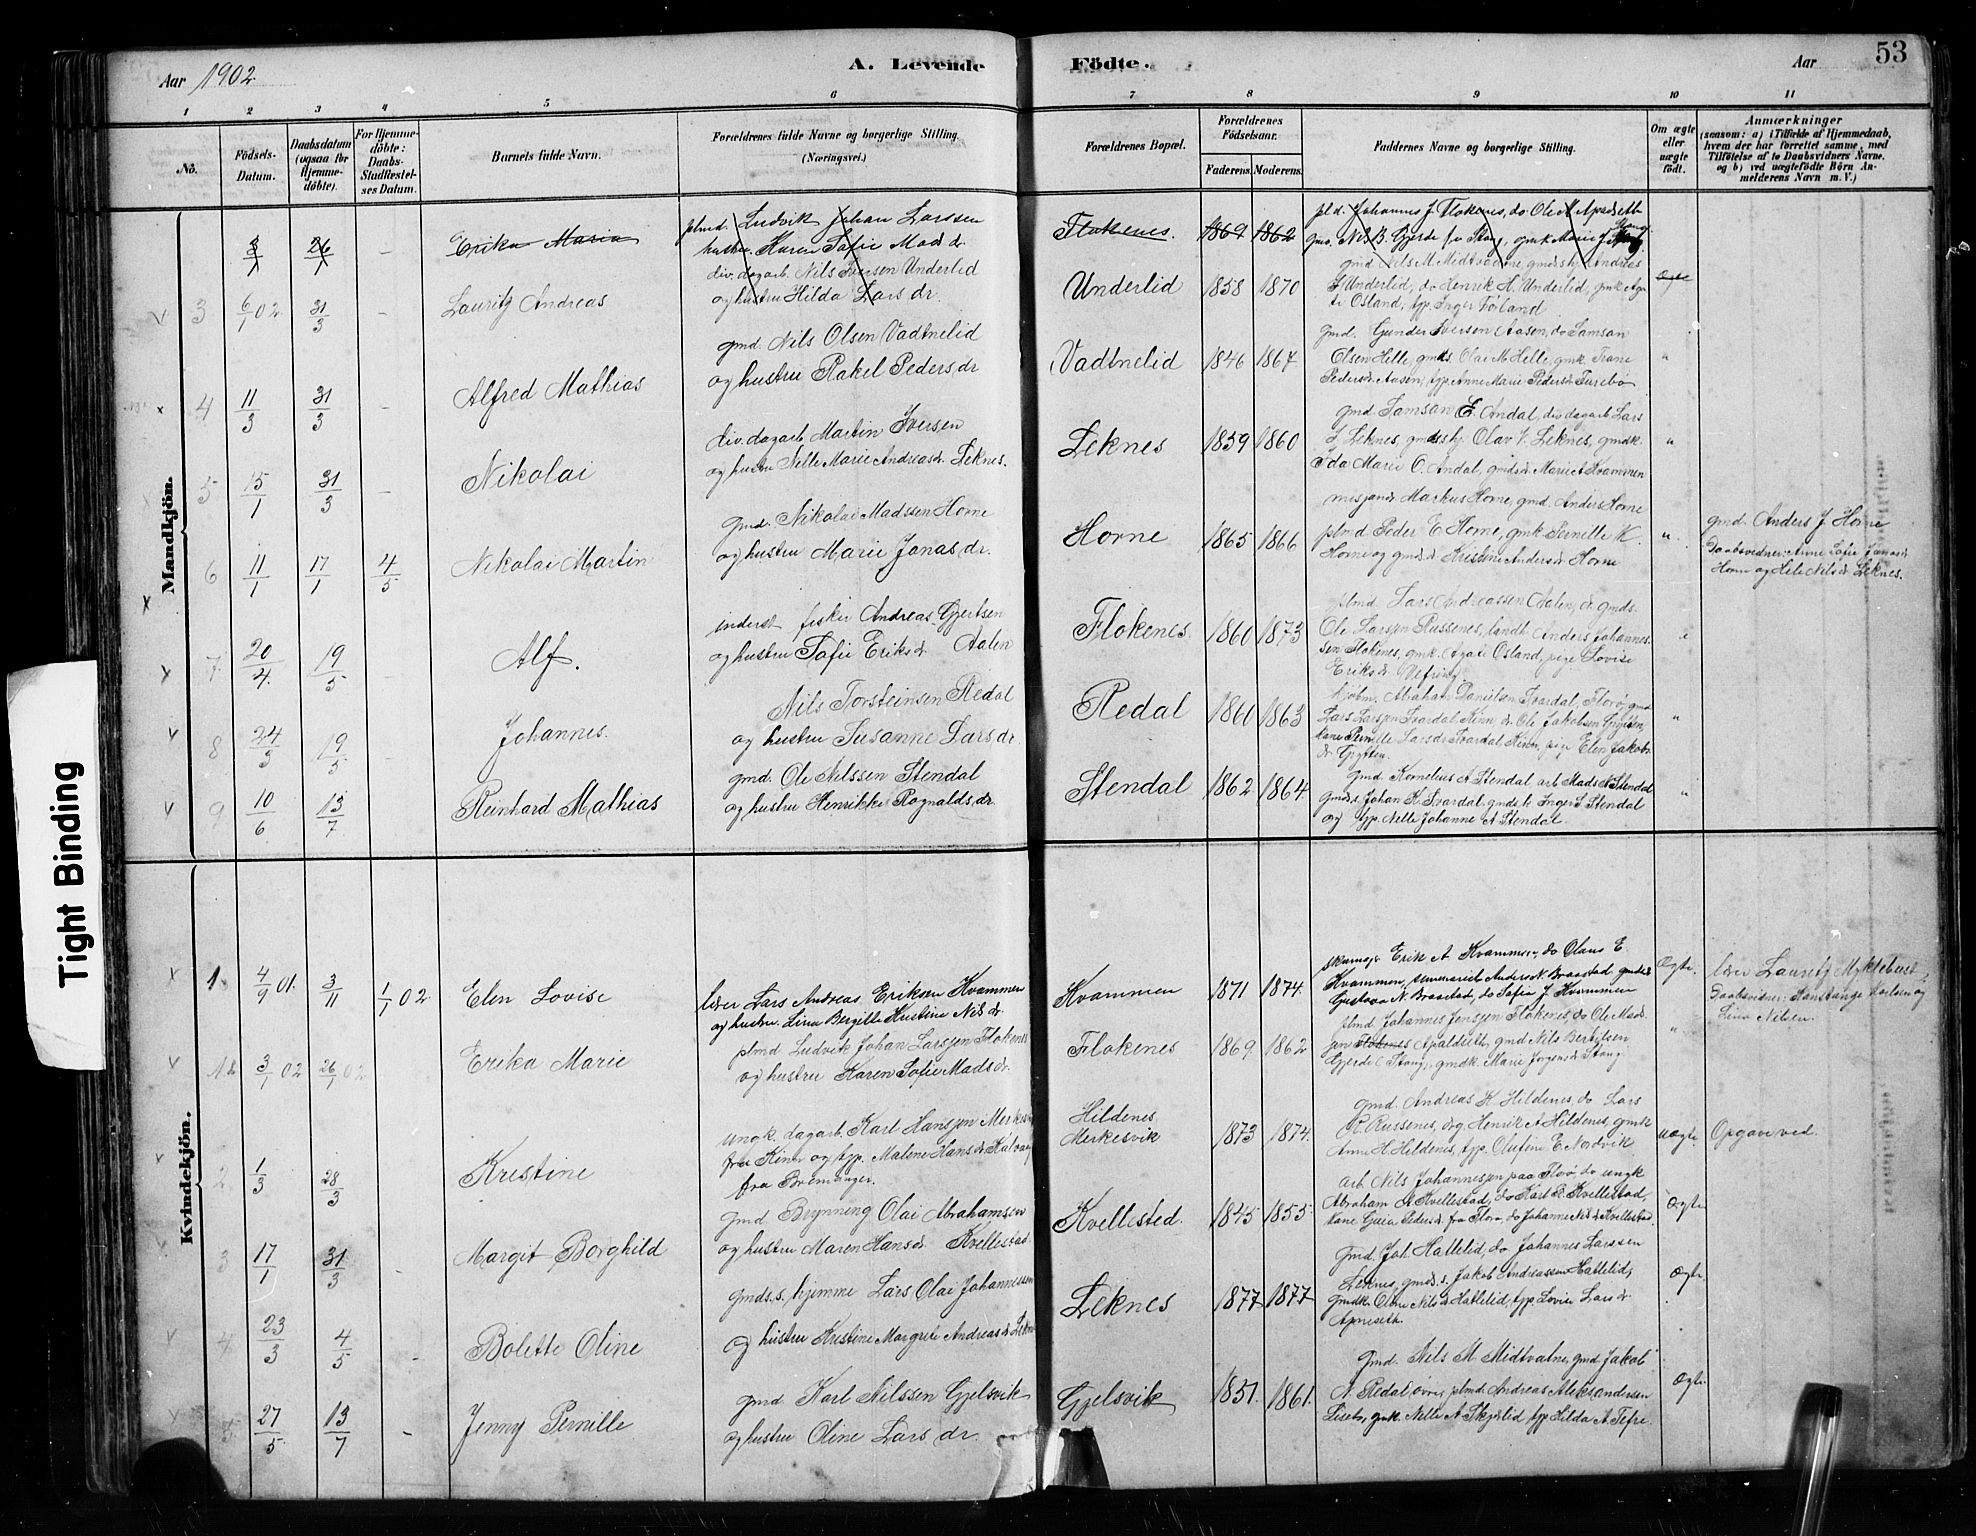 53
Aar 1902
A. Levende
Födte.
Aar
1 2 3 4 5 6 7 8 9 10 11
No.
Födsels-Datum.
Daabsdatum (ogsaa for Hjemmedöbte).
For Hjemmedöbte: Daabs-Stadfæstelses Datum.
Barnets fulde Navn.
Forældrenes fulde Navne og borgerlige Stilling. (Næringsvei.)
Forældrenes Bopæl.
Forældrenes Födselsaar.
Faderens. Moderens.
Faddernes Navne og borgerlige Stilling.
Om ægte eller uægte födt.
Anmærkninger
(saasom: a) i Tilfælde af Hjemmedaab, hvem der har forrettet samme, med Tilföielse af to Daabsvidners Navne, og b) ved uægtefödte Börn Anmelderens Navn m. V.)
Mandkjön.
3/1 26/1 - Erika Maria
plmd. Ludvik Johan Larssen
hustru Karen Sofie Mads dr
Flokenes. 1869 1862
pld. Johannes J. Flokenes, do Ole M Apaldseth
gmd. Nils B. Gjerde
3 6/1 02 31/3 - Lauritz Andreas
div. dagarb. Nils Iversen Underlid
og hustru Hilda Lars dr.
Underlid 1858 1870
gmd Nils M Midtvadne, gmdshj Andreas
I Underlid, do Henrik H. Underlid, gmk
Osland, tjp. Inger Föland
Ægte
4 11/3 31/3 - Alfred Mathias
gmd. Nils Olsen Vadtnelid
og hustru Rakel Peders dr
Vadtnelid 1846 1867
gmd. Gunder Iversen Aasen, do Samson
Olsen Helle, gmds. Olai M. Helle, gmk.
Pedersdr Aasen, tjp. Anne Marie Pedersdr
"
5 15/1 31/3 - Nikolai
div. dagarb Martin Iversen
og hustru Nelle Marie Andreasdr. Leknes.
Leknes 1859 1860
gmd Samson E. Andal, div dagarb Lars
I Leknes, Olav V. Leknes, gmdk.
Ida Marie O. Andal, gmdsdr Marie A Kvammen
"
6 11/1 17/1 4/5 Nikolai Martin
gmd. Nikolai Madssen Horne
og hustru Marie Jonas dr.
Horne 1865 1866
Markus Horne, gmd. Anders Horne
plmd Peder E Horne, gmk Pernille K.
Horne og gmdsdr Kristine Andersdr Horne
"
gmd. Anders J. Horne
Daabsvidner: Anne Sofie Jonasdr
Horne og Nilsdr Leknes.
7 20/4 19/5 - Alf.
inderst fisker Andreas Gjertsen
og hustru Sofie Eriksdr Aalen
Flokenes 1860 1873
plmd Lars Andreassen Aalen, do gmds.
Ole Larssen Russenes, landh. Anders Johannes
sen Flokenes, gmk. Osland, pige Lovise
Eriksdr Vefring.
8 24/3 19/5 - Johannes.
Nils Torsteinsen Redal
og hustru Susanne Lars dr.
Redal 1860 1863
kjöbm. Abraham Danielsen Svardal, Florö, gmd
Lars Larssen Svardal, Kinn, do Ole Jakobsen
kone Pernille Larsdr Svardal, Kinn, pige Elen Jakobs
dr
"
9 10/6 13/7 Reinhard Mathias
gmd. Ole Nilssen Stendal
og hustru Henrikke Rognalds dr.
Stendal 1862 1864.
gmd. Kornelius A Stendal arb Mads N Stendal
gmds. Johan K. Svardal gmdk Inger S Stendal
og tjp. Nelle Johanne A Stendal.
"
Kvindekjön.
1 4/9 01. 3/11 1/1 02 Elen Lovise
lærer Lars Andreas Eriksen Kvammen
og hustru Lina Bergitte Kristine Nils dr.
Kvammen 1871 1874.
Erik A Kvammen, do Olaus E.
Kvammen, Anders N. Braastad
Gustava N Braastad, do Sofie J Kvammen
Ægte.
lærer Lauritz Myklebust
Daabsvidner: Karlsen og
Lina Nilsen.
1 3/1 02 26/1 02 Erika Marie
plmd Ludvik Johan Larssen Flokenes
og hustru Karen Sofie Mads dr.
Flokenes 1869. 1862
plmd Johannes Jenssen Flokenes, do Ole Mads
sen Flokenes Apaldseth, gmd Nils Bertilsen
Gjerde gmdk. Marie Stang
"
2 1/3 28/3 Kristine
ungk. dagarb. Karl Hanssen
fra Kinn og tjp. Malene Hansdr
fra Bremanger.
Hildenes
Merkesvik 1873 1874.
gmd. Andreas K Hildenes, do Lars
R. Russenes, Henrik A Hildenes, gmk
Anne H Hildenes, tjp. Olufine E Nordvik
uægte
Opgave ved.
3 17/1 31/3 - Margit Borghild
gmd Brynning Olai Abrahamsen
og hustru Maren Hansdr Kvellestad
Kvellested. 1845 1855
arb Nils Johannessen paa Florö do ungk
Abraham A Kvellestad, do Karl R. Kvellestad,
kone Pedersdr fra Florö, do Johanne Nilsdr Kvellestad
Ægte
4 23/3 4/5 - Bolette Oline
gmds.s. hjemme Lars Olai Johannessen
og hustru Kristine Margrete Andreasdr
Leknes 1877 1877
gmd Joh Hattelid, do Johannes Larssen
Leknes, gmds.s. Jakob Andreassen Hattelid,
gmdk. Nilsdr Hattelid, tjp Lovise Lars dr.
Ægte
5 27/5 13/7 - Jenny Pernille
gmd Karl Nilssen Gjelsvik
og hustru Oline Lars dr.
Gjelsvik 1851. 1861.
gmd. Nils M Midtvatne, gmd Jakob
N. Redal övre, plmd. Andreas Aleksandersen
gmk Nelle A Skjerlid, tjp Hilda A. Tefre.
Ægte
Tight Binding